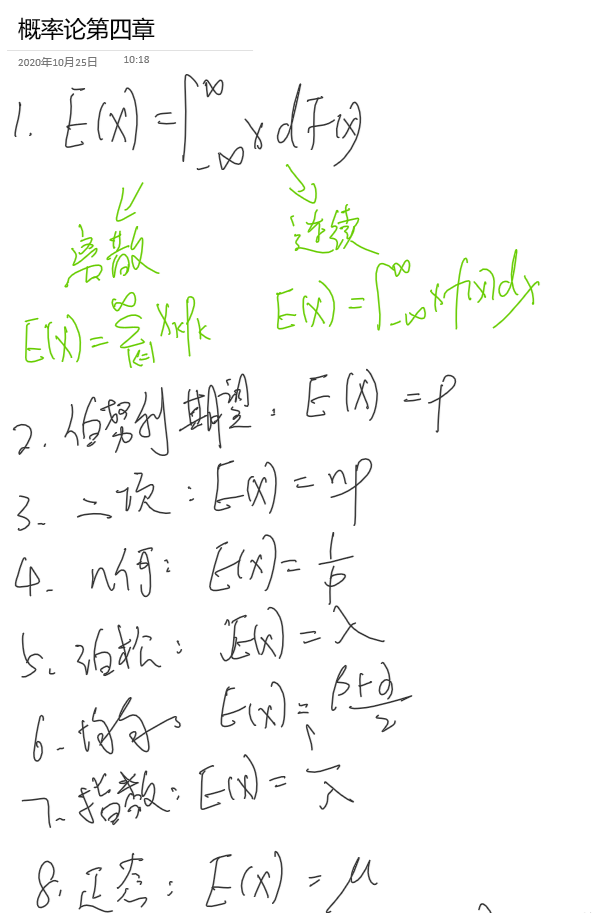 概率论第四章
2020年10月25日 10:18
1. E(X) = ∫_{-∞}^{∞} x dF(x)
离散 连续
E(X) = ∑_{k=1}^{∞} x_k p_k E(X) = ∫_{-∞}^{∞} x f(x) dx
2. 伯努利期望: E(X) = p
3. 二项: E(X) = np
4. 几何: E(X) = 1/p
5. 泊松: E(X) = λ
6. 均匀: E(X) = (β+α)/2
7. 指数: E(X) = 1/λ
8. 正态: E(X) = μ